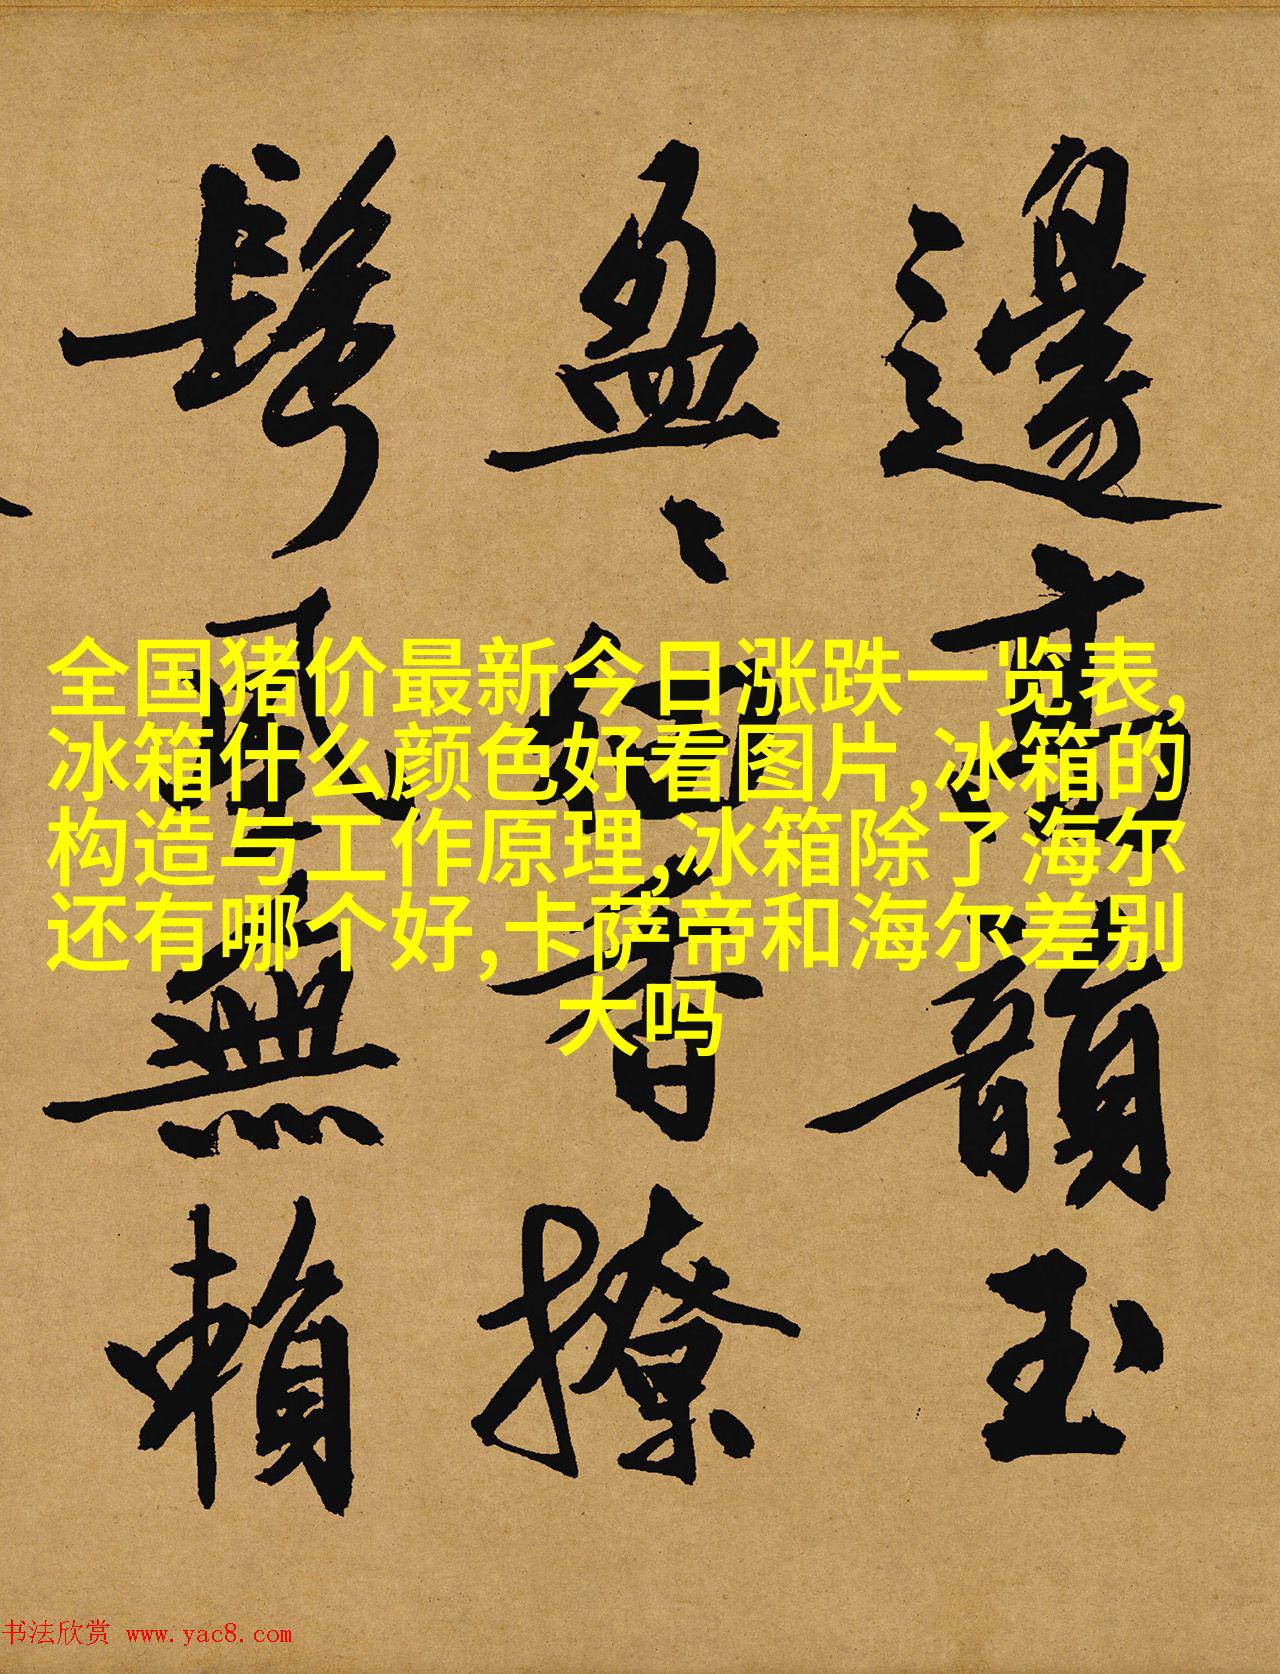 邊高韻玉
盈盈何香撩
鬓風無賴
全国猪价最新今日涨跌一览表,
冰箱什么颜色好看图片,冰箱的
构造与工作原理,冰箱除了海尔
还有哪个好,卡萨帝和海尔差别
大吗
书法欣赏 www.yac8.com